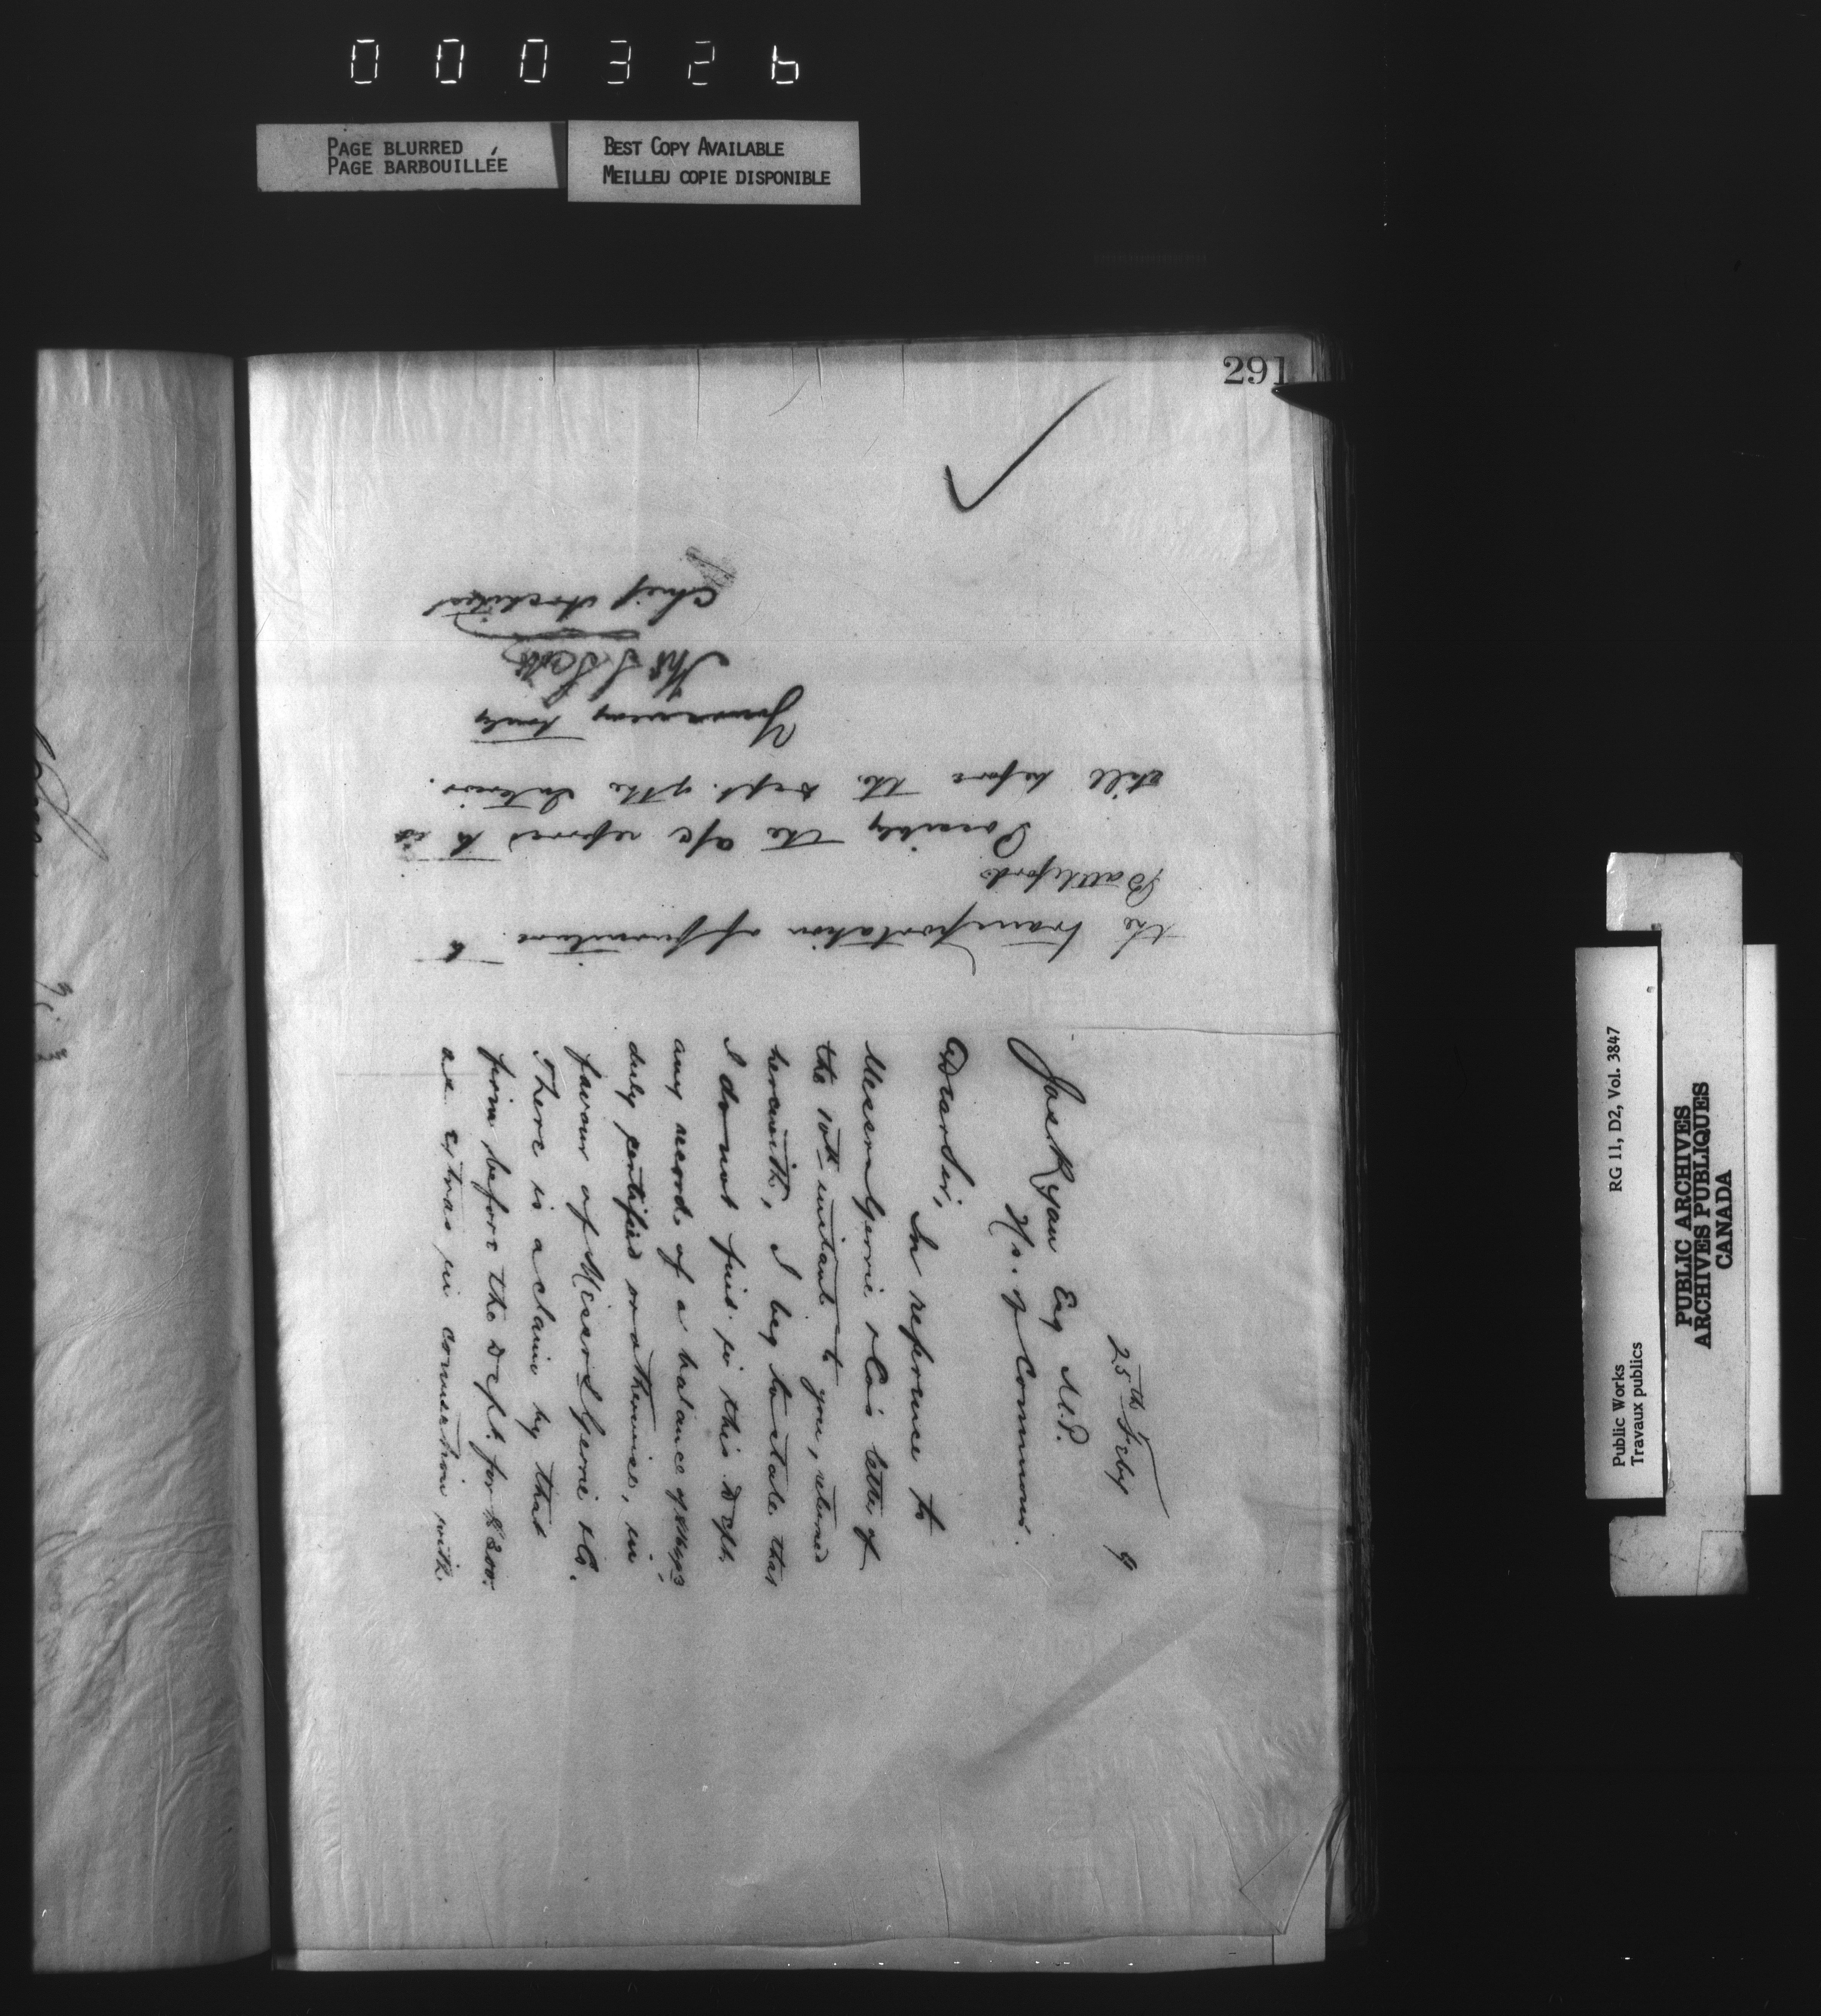 000326
PAGE BLURRED
PAGE BARBOUILLÉE
BEST COPY AVAILABLE
MEILLEU COPIE DISPONIBLE
291
25th Feby 9
Jos Ryan Esq M.P.
Hs. of Commons.
Dear Sir,
In reference to
Messrs Gerrie & Co's letter of
the 10th instant to you, returned
herewith, I beg to state that
I do not find in this Dept.
any record of a balance of
duly certified or otherwise, in
favour of Messrs Gerrie & Co.
There is a claim by that
firm before the Dept. for
as extras in connection with
the transportation of furniture to
Battleford
Possibly the a/c referred to is
still before the Dept. of the Interior.
Yours very truly
Ths S Scott
Chief Architect
Public Works
Travaux publics
RG 11, D2, Vol. 3847
PUBLIC ARCHIVES
ARCHIVES PUBLIQUES
CANADA